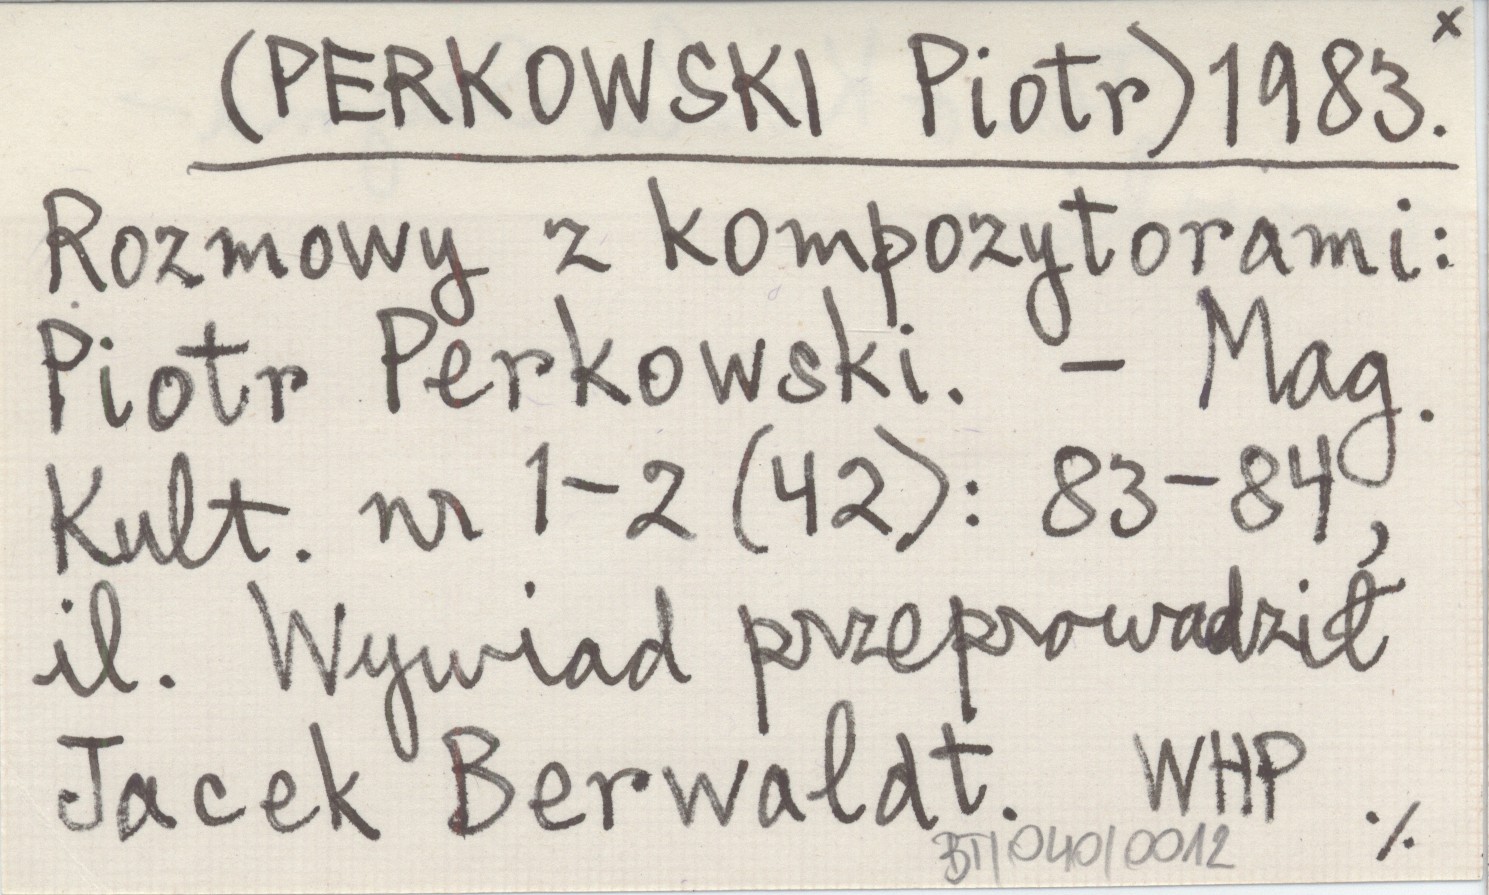 (PERKOWSKI Piotr) 1983. x
Rozmowy z kompozytorami:
Piotr Perkowski. – Mag.
Kult. nr 1–2 (42): 83–84,
il. Wywiad przeprowadził
Jacek Berwaldt. WHP ./.
BT/040/0012